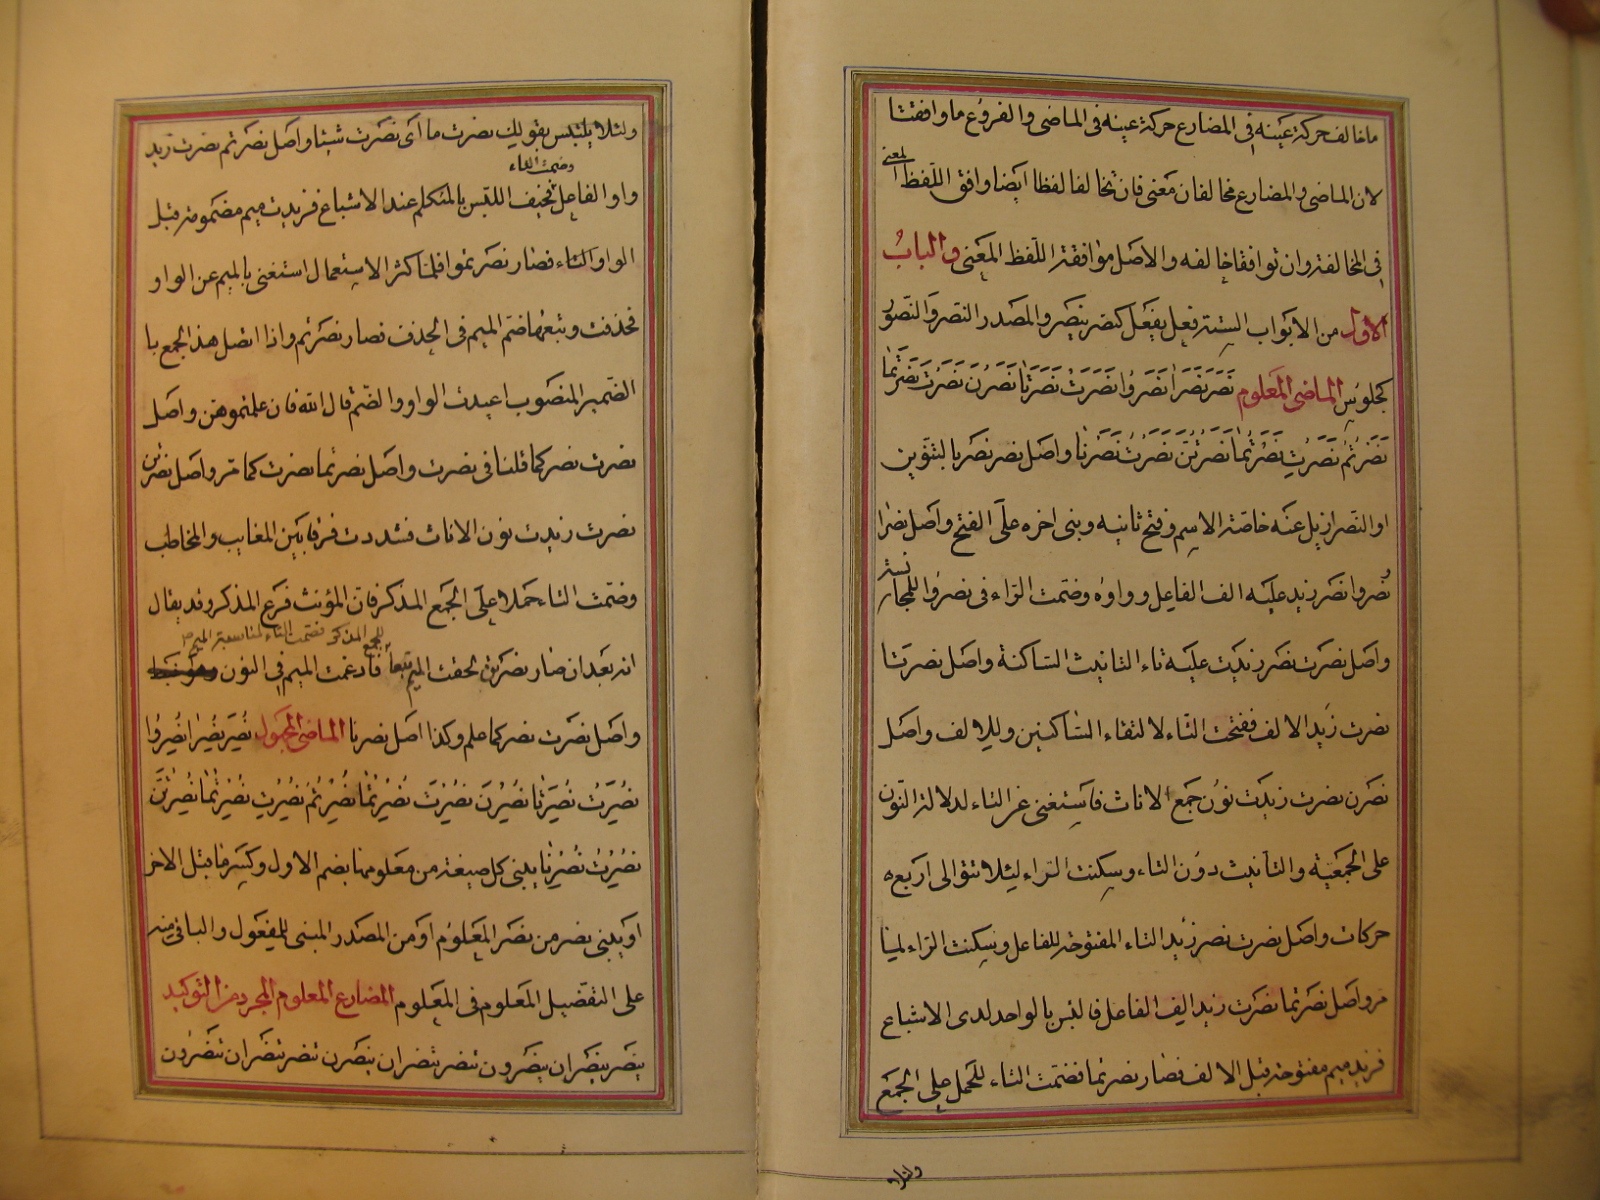 ما خالف حركة عينه في المضارع حركة عينه في الماضى والفروع ما وافقتا
لان الماضى والمضارع مخالفان معنى فان تخالفا لفظا ايضا وافق اللفظ المعنى
في المخالفة وان توافقا خالفه والاصل موافقة اللفظ المعنى والبابُ
الاول من الابواب الستة فعل يفعل كنصر ينصر والمصدر النصر والنصور
كجلوس الماضى المعلوم نَصَرَ نَصَرَا نَصَرُوا نَصَرَتْ نَصَرَتَا نَصَرْنَ نَصَرْتَ نَصَرْتُمَا
نَصَرْتُمْ نَصَرْتِ نَصَرْتُمَا نَصَرْتُنَّ نَصَرْتُ نَصَرْنَا واصل نصر نصر بالتنوين
او النصر ازيل عنه خاصة الاسم وفتح ثانيه وبنى اخره على الفتح واصل نصرا
نصروا نصر زيد عليه الف الفاعل وواوه وضمت الراء فى نصروا للمجانسة
واصل نصرت نصر زيدت عليه تاء التانيث الساكنة واصل نصرتا
نصرت زيد الالف ففتحت التاء لالتقاء الساكنين وللالف واصل
نصرن نصرت زيدت نون جمع الاناث فاستغنى عن التاء لدلالة النون
على الجمعية والتأنيث دون التاء وسكنت الراء لئلا تتوالى اربع
حركات واصل نصرت نصر زيد التاء المفتوحة للفاعل وسكنت الراء لما
مر واصل نصرتما نصرت زيد الف الفاعل فالتبس بالواحد لدى الاشباع
فزيد ميم مفتوحة قبل الالف فصار نصرتما فضمت التاء للحمل على الجمع
ولئلا
ولئلا يلتبس بقولك نصرت ما اى نصرت شيئا واصل نصرتم نصرت زيد
وضمت التاء
واو الفاعل فخيف اللبس بالمتكلم عند الاشباع فزيدت ميم مضمومة قبل
الواو والتاء فصار نصرتموا فلما كثر الاستعمال استغنى بالميم عن الواو
فحذفت وتبعها ضم الميم فى الحذف فصار نصرتم واذا اتصل هذا الجمع با
الضمير المنصوب اعيدت الواو والضم قال الله فان علمتموهن واصل
نصرت نصر كما قلنا فى نصرت واصل نصرتما نصرت كما مر واصل نصرتن
نصرت زيدت نون الاناث فشددت فرقا بين الغايب والمخاطب
وضمت التاء حملا على الجمع المذكر فان المؤنث فرع المذكر وقد يقال
للجمع المذكر فضمت التاء لمناسبة الميم
انه بعد ان صار نصرتن لحقت الميم تبعا فادغمت الميم فى النون
واصل نصرت نصر كما علم وكذا اصل نصرنا الماضى المجهول نُصِرَ نُصِرَا نُصِرُوا
نُصِرَتْ نُصِرَتَا نُصِرْنَ نُصِرْتَ نُصِرْتُمَا نُصِرْتُمْ نُصِرْتِ نُصِرْتُمَا نُصِرْتُنَّ
نُصِرْتُ نُصِرْنَا يبنى كل صيغة من معلومها بضم الاول وكسر ما قبل الاخر
او يبنى نصر من نصر المعلوم او من المصدر المبنى للمفعول والباقى منه
على التفضيل المعلوم فى المعلوم المضارع المعلوم المجرد من التوكيد
ينصر ينصران ينصرون تنصر تنصران ينصرن تنصر تنصران تنصرون